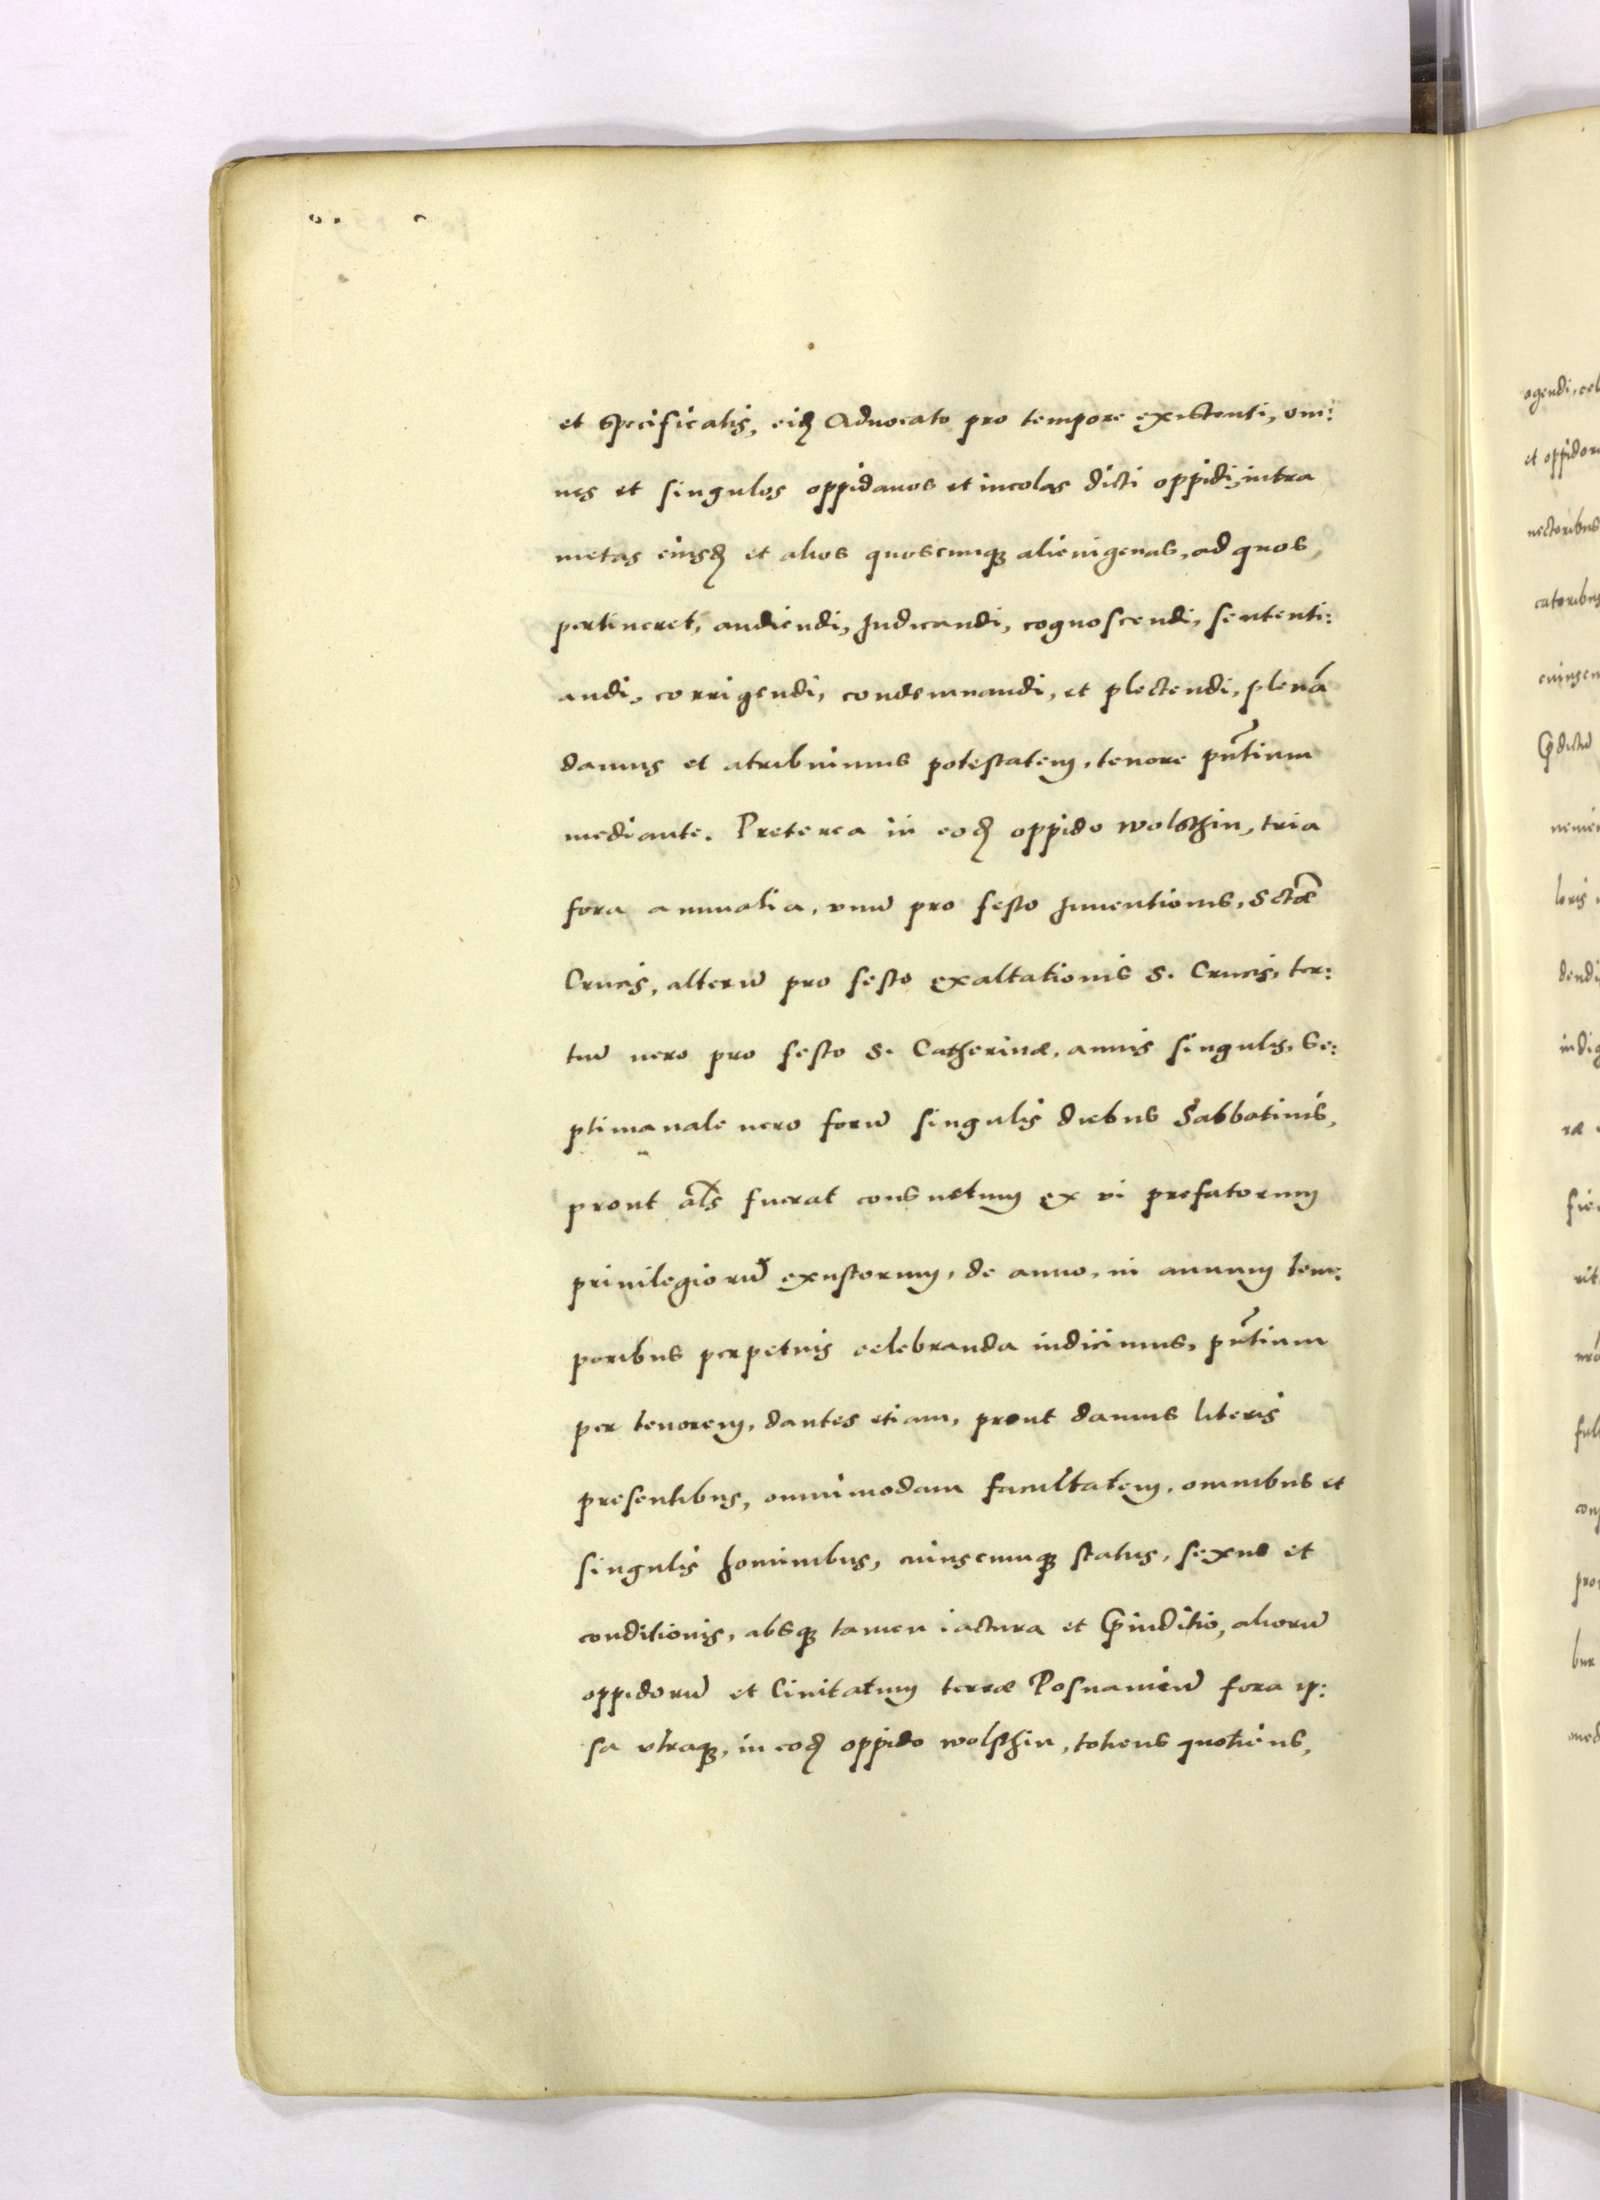 et specificatis, eidẽ Aduocato pro tempore existenti, om:
nes et singulos oppidanos et incolas dicti oppidi, intra
metas eiusdẽ et alios quoscunqꝫ alienigenas, ad quos
pertineret, audiendi, Judicandi, cognoscendi, sententi:
andi, corrigendi, condemnandi, et plectendi, plenã
damus et atribuimus potestatem, tenore pñtium
mediante. Preterea in eodẽ oppido wolsthin, tria
fora annualia, vnũ pro festo Jnuentionis, Sctæ
Crucis, alterũ pro festo exaltationis S. Crucis, ter:
tiũ uero pro festo S. Catherinæ, annis singulis, Se:
ptimanale uero forũ singulis diebus Sabbatinis,
prout als fuerat consuetum ex vi prefatorum
priuilegiorũ exustorum, de anno, in annum tem:
poribus perpetuis celebranda indicimus, pñtium
per tenorem, dantes etiam, prout damus literis
presentibus, omnimodam facultatem, omnibus et
singulis hominibus, cuiuscunqꝫ status, sexus et
conditionis, absqꝫ tamen iactura et p̃iuditio, aliorũ
oppidorũ et Ciuitatum terræ Posnaniẽ fora ip:
sa vtraqꝫ, in eodẽ oppido wolsthin, totiens quotiens,
agendi, cel
et oppidor
uectoribus
catoribus
p̃dictũ
loris
dendi
indig
ræ